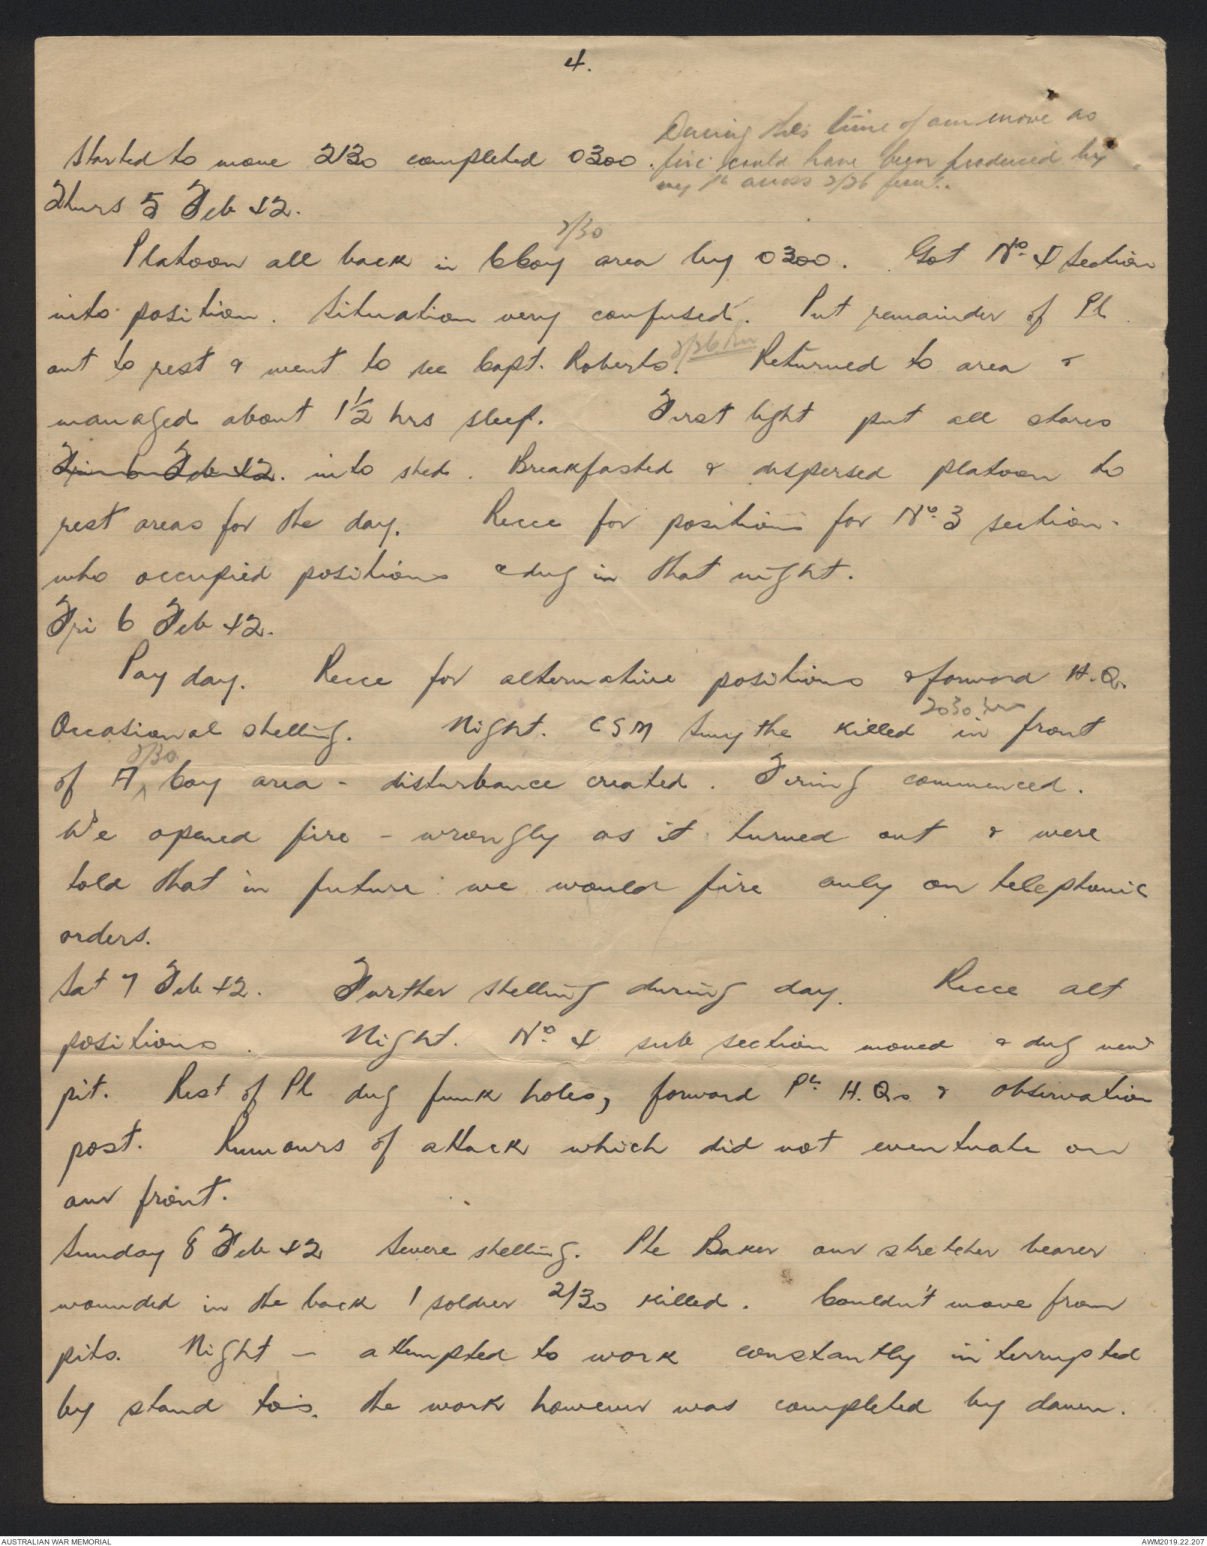 4.
During this time of our move as
Started to move 2130 completed 0300. fire could have been produced by
my Pl across 2/26 front.
Thurs 5 Feb 42.
2/30
Platoon all back in C Coy area by 0300. Got No. 4 Section
into position. Situation very confused. Put remainder of Pl
out to rest & went to see Capt. Roberts. 2/26 Bn Returned to area &
managed about 1½ hrs sleep. First light put all stores
Fri 6 Feb 42. into shed. Breakfasted & dispersed platoon to
rest areas for the day. Recce for positions for No. 3 section
who occupied positions & dug in that night.
Fri 6 Feb 42.
Pay day. Recce for alternative positions & forward H.Q.
2030 hrs
Occasional shelling. Night. CSM Smythe killed in front
2/30
of A ^ Coy area - disturbance created. Firing commenced.
We opened fire - wrongly as it turned out & were
told that in future we would fire only on telephonic
orders.
Sat 7 Feb 42. Further shelling during day. Recce alt
positions. Night. No. 4 sub section moved & dug new
pit. Rest of Pl dug funk holes, forward Pl. H.Qs & observation
post. Rumours of attack which did not eventuate on
our front.
Sunday 8 Feb 42 Severe shelling. Pte Baker our stretcher bearer
wounded in the back 1 soldier 2/30 killed. Couldn't move from
pits. Night - attempted to work constantly interrupted
by stand to's. the work however was completed by dawn.
AUSTRALIAN WAR MEMORIAL
AWM2019.22.207